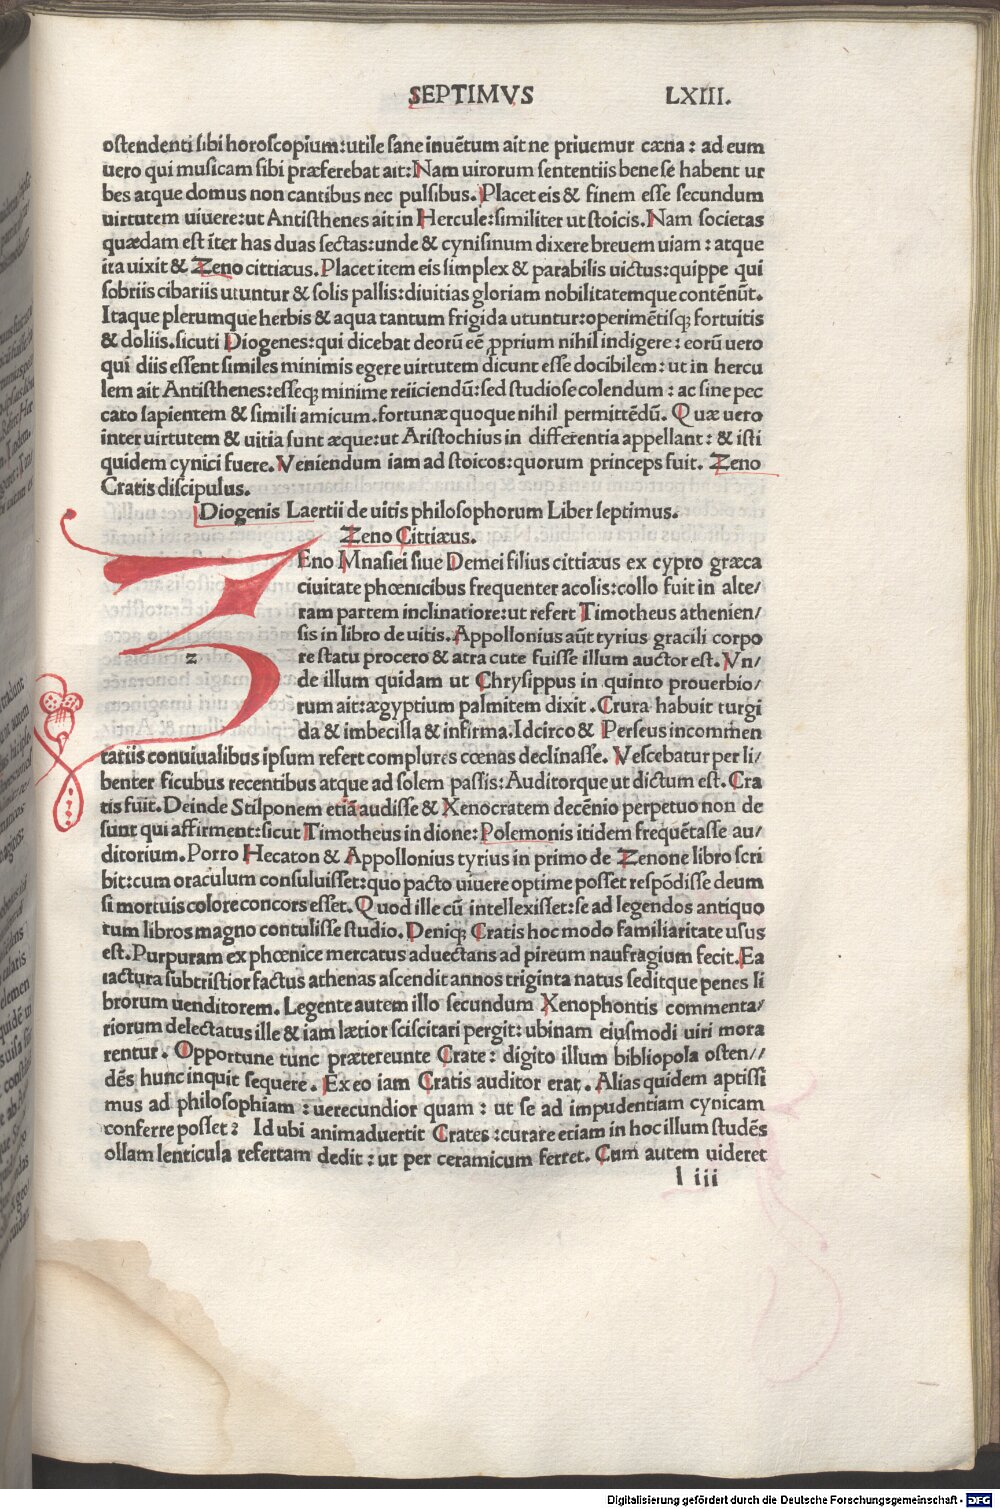 SEPTIMVS LXIII.
ostendenti sibi horoscopium:utile sane inuētum ait ne priuemur cæna: ad eum
uero qui musicam sibi præferebat ait:Nam uirorum sententiis bene se habent ur
bes atque domus non cantibus nec pulsibus. Placet eis & finem esse secundum
uirtutem uiuere:ut Antisthenes ait in Hercule:similiter ut stoicis. Nam societas
quædam est īter has duas sectas:unde & cynisinum dixere breuem uiam: atque
ita uixit & Zeno cittiæus. Placet item eis simplex & parabilis uictus:quippe qui
sobriis cibariis utuntur & solis pallis:diuitias gloriam nobilitatemque contēnūt.
Itaque plerumque herbis & aqua tantum frigida utuntur:operimētisqꝫ fortuitis
& doliis.sicuti Diogenes:qui dicebat deorū eē ꝓprium nihil indigere: eorū uero
qui diis essent similes minimis egere uirtutem dicunt esse docibilem: ut in hercu
lem ait Antisthenes:esseqꝫ minime reiiciendū:sed studiose colendum: ac sine pec
cato sapientem & simili amicum.fortunæ quoque nihil permittēdū. Quæ uero
inter uirtutem & uitia sunt æque:ut Aristochius in differentia appellant: & isti
quidem cynici fuere. Veniendum iam ad stoicos:quorum princeps fuit. Zeno
Cratis discipulus.
Diogenis Laertii de uitis philosophorum Liber septimus.
Zeno Cittiæus.
Z
z
Eno Mnasiei siue Demei filius cittiæus ex cypro græca
ciuitate phœnicibus frequenter acolis:collo fuit in alte/
ram partem inclinatiore:ut refert Timotheus athenien/
sis in libro de uitis. Appollonius aūt tyrius gracili corpo
re statu procero & atra cute fuisse illum auctor est. Vn/
de illum quidam ut Chrysippus in quinto prouerbio/
rum ait:ægyptium palmitem dixit. Crura habuit turgi
da & imbecilla & infirma.Idcirco & Perseus incommen
tariis conuiualibus ipsum refert complures cœnas declinasse. Vescebatur per li/
benter ficubus recentibus atque ad solem passis:Auditorque ut dictum est. Cra
tis fuit. Deinde Stilponem etiā audisse & Xenocratem decēnio perpetuo non de
sunt qui affirment:sicut Timotheus in dione: Polemonis itidem frequētasse au/
ditorium. Porro Hecaton & Appollonius tyrius in primo de Zenone libro scri
bit:cum oraculum consuluisset:quo pacto uiuere optime posset respōdisse deum
si mortuis colore concors esset. Quod ille cū intellexisset:se ad legendos antiquo
rum libros magno contulisse studio. Deniqꝫ Cratis hoc modo familiaritate usus
est. Purpuram ex phœnice mercatus aduectans ad pireum naufragium fecit. Ea
iactura subtristior factus athenas ascendit annos triginta natus seditque penes li
brorum uenditorem. Legente autem illo secundum Xenophontis commenta/
riorum delectatus ille & iam lætior sciscitari pergit: ubinam eiusmodi uiri mora
rentur. Opportune tunc prætereunte Crate: digito illum bibliopola osten//
dēs hunc inquit sequere. Ex eo iam Cratis auditor erat. Alias quidem aptissi
mus ad philosophiam : uerecundior quam : ut se ad impudentiam cynicam
conferre posset? Id ubi animaduertit Crates :curare etiam in hoc illum studēs
ollam lenticula refertam dedit : ut per ceramicum ferret. Cum autem uideret
l iii
Digitalisierung gefördert durch die Deutsche Forschungsgemeinschaft - DFG